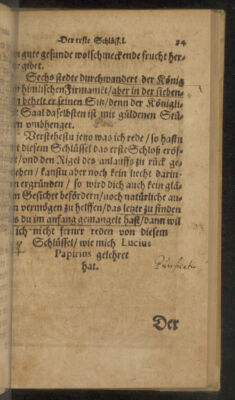 Der erste Schlüssel. 24
gute gesunde wolschmeckende frucht her-
gibet.
Sechs stedte durchwandert der König
himlischen Firmamēt/ aber in der sieben-
behelt er seinen Sitz/ denn der Königli-
Saal daselbsten ist mit güldenen Stü-
umbhenget.
Verstehestu jeno was ich rede / so hastu
t diesem Schlüssel das erste Schloß eröf-
et/ und den Rigel des anlauffs zu rück ge-
ehen / kanstu aber noch kein liecht darin-
ergründen / so wird dich auch kein glä-
Gesicht befördern/ noch natürliche au-
vermögen zu helffen/ das letzte zu finden
s du im anfang gemangelt hast/ dann wil
ich nicht ferner reden von diesem
Schlüssel/ wie mich Lucius
Papirius gelehret
hat.
Der